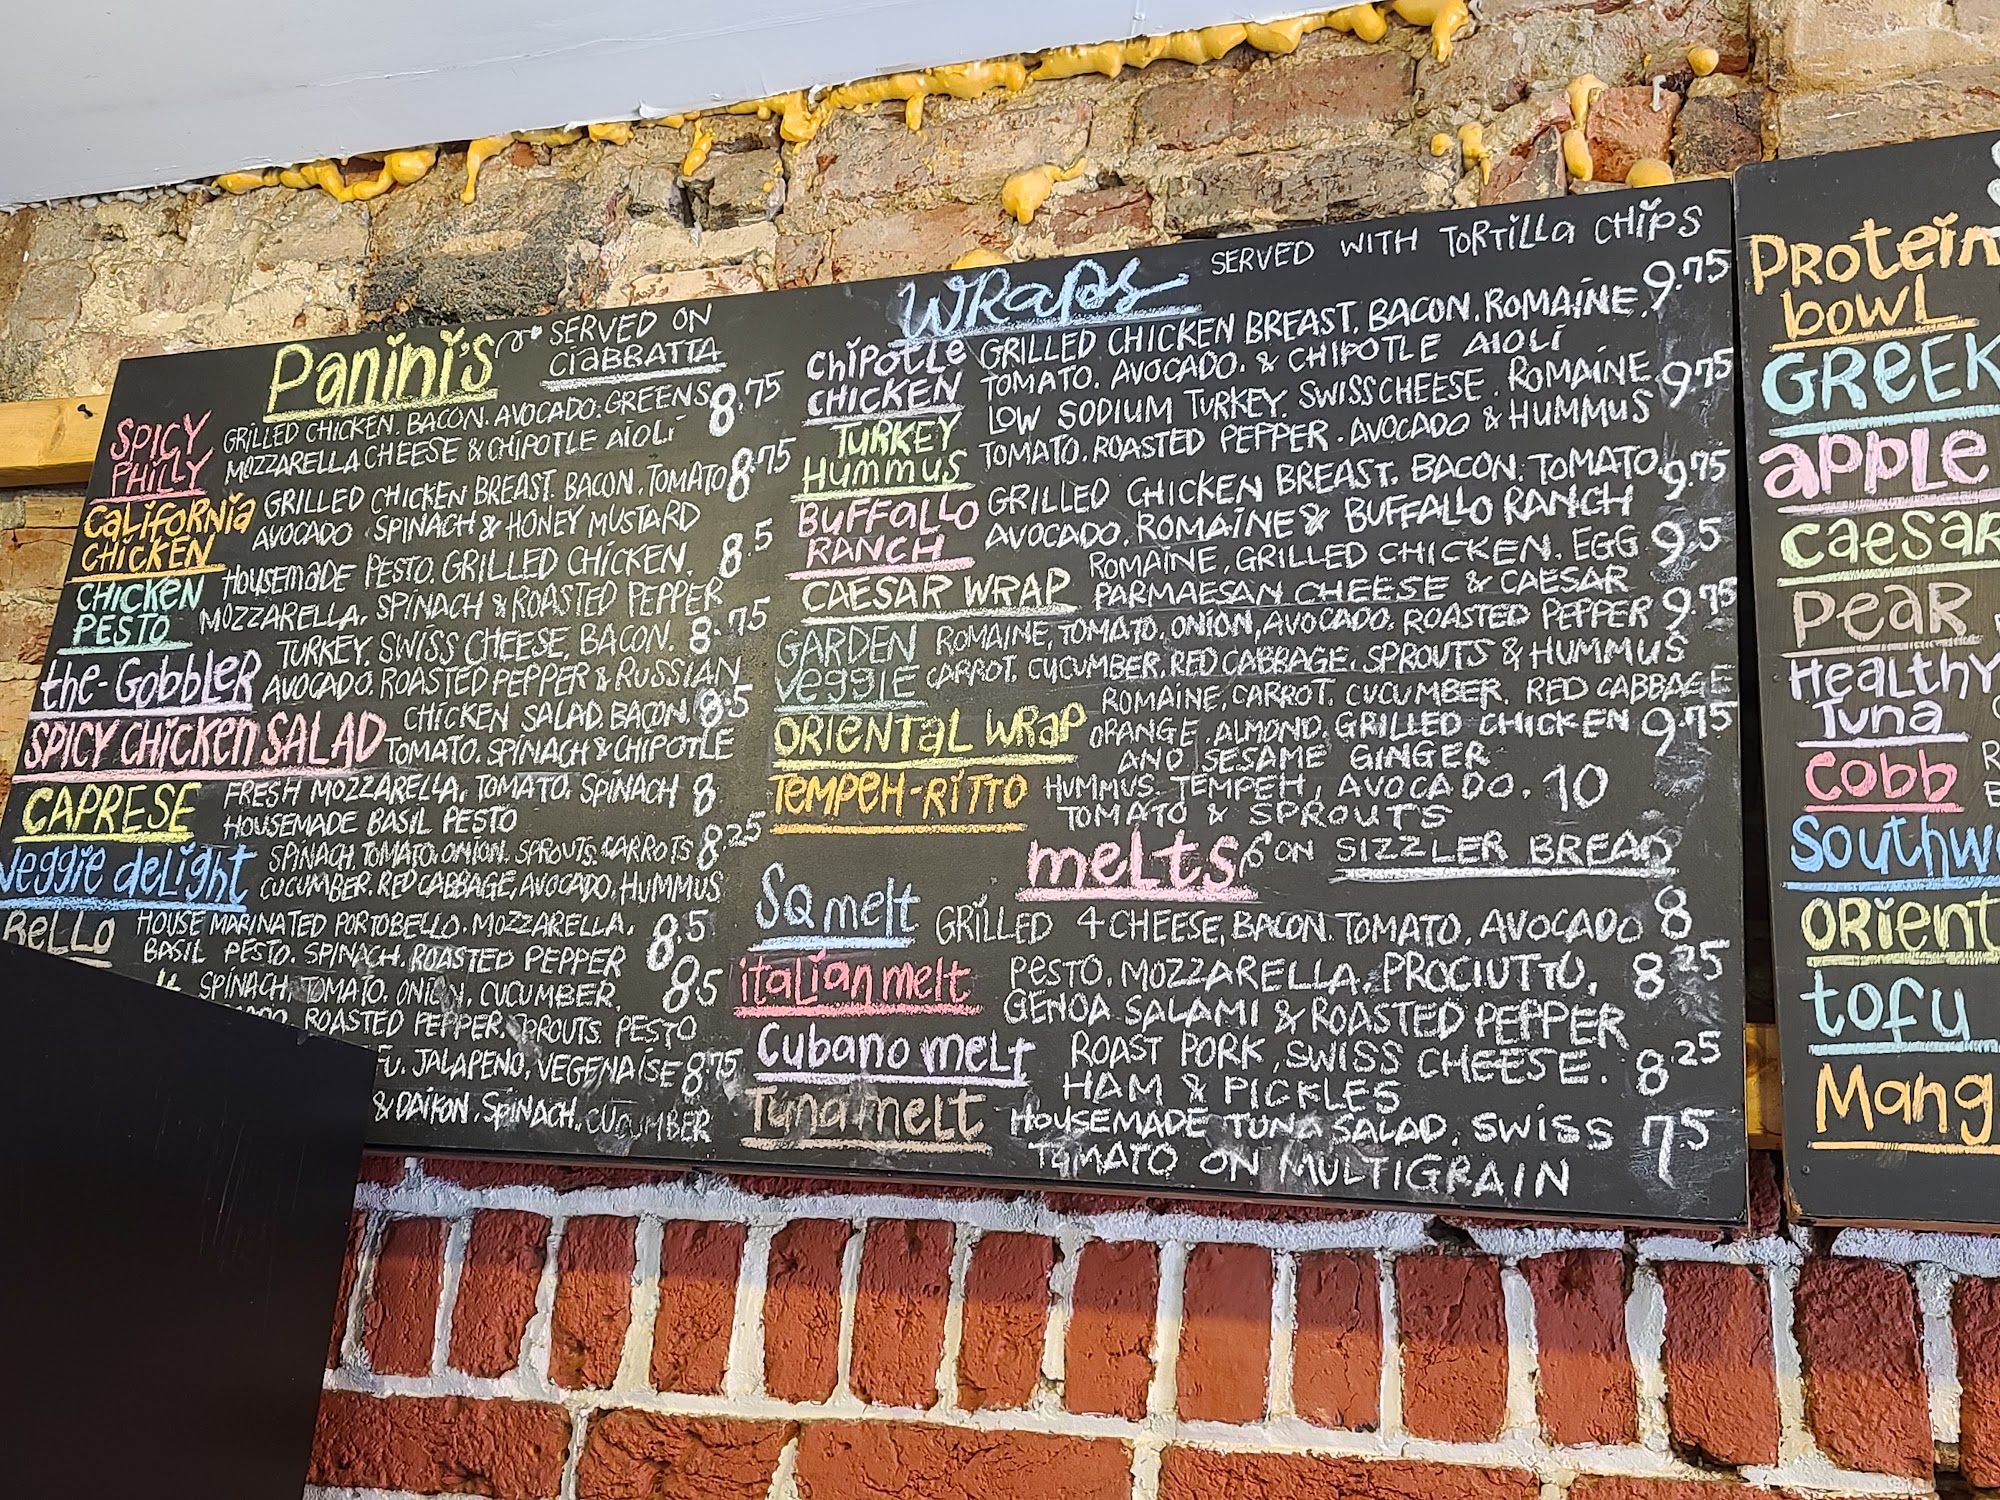 Panini's SERVED ON
CiaBBATTA
SPICY PHILLY GRILLED CHICKEN. BACON. AVOCADO. GREENS 8.75
MOZZARELLA CHEESE & CHIPOTLE AIOLI
CALIFORNIA CHICKEN GRILLED CHICKEN BREAST. BACON. TOMATO 8.75
AVOCADO. SPINACH & HONEY MUSTARD
CHICKEN PESTO HOUSEMADE PESTO. GRILLED CHICKEN. 8.5
MOZZARELLA, SPINACH & ROASTED PEPPER
the-Gobbler TURKEY. SWISS CHEESE, BACON. 8.75
AVOCADO. ROASTED PEPPER & RUSSIAN
SPICY CHICKEN SALAD CHICKEN SALAD. BACON. 8.5
TOMATO. SPINACH & CHIPOTLE
CAPRESE FRESH MOZZARELLA, TOMATO. SPINACH 8
HOUSEMADE BASIL PESTO
Veggie deLight SPINACH. TOMATO. ONION. SPROUTS. CARROTS 8.25
CUCUMBER. RED CABBAGE, AVOCADO. HUMMUS
BeLLO HOUSE MARINATED PORTOBELLO. MOZZARELLA. 8.5
BASIL PESTO. SPINACH. ROASTED PEPPER
SPINACH, TOMATO. ONION, CUCUMBER. 8.5
ROASTED PEPPER. SPROUTS. PESTO
JALAPENO, VEGENAISE 8.75
& DAIKON. SPINACH. CUCUMBER
WRaps SERVED WITH TORTILLa CHIPS
CHIPOTLE CHICKEN GRILLED CHICKEN BREAST. BACON. ROMAINE. 9.75
TOMATO. AVOCADO. & CHIPOTLE AIOLI
TURKEY HUMMUS LOW SODIUM TURKEY. SWISS CHEESE. ROMAINE 9.75
TOMATO. ROASTED PEPPER. AVOCADO & HUMMUS
BUFFALLO RANCH GRILLED CHICKEN BREAST. BACON. TOMATO. 9.75
AVOCADO, ROMAINE & BUFFALLO RANCH
CAESAR WRAP ROMAINE, GRILLED CHICKEN. EGG 9.5
PARMAESAN CHEESE & CAESAR
GARDEN VEGGIE ROMAINE, TOMATO. ONION, AVOCADO. ROASTED PEPPER 9.75
CARROT. CUCUMBER. RED CABBAGE. SPROUTS & HUMMUS
ORIENTAL WRAP ROMAINE, CARROT. CUCUMBER. RED CABBAGE
ORANGE. ALMOND. GRILLED CHICKEN 9.75
AND SESAME GINGER
TEMPEH-RITTO HUMMUS. TEMPEH, AVOCADO. 10
TOMATO & SPROUTS
MELTS ON SIZZLER BREAD
SQ melt GRILLED 4 CHEESE, BACON. TOMATO. AVOCADO 8
italian melt PESTO. MOZZARELLA. PROCIUTTO, 8.25
GENOA SALAMI & ROASTED PEPPER
Cubano melt ROAST PORK, SWISS CHEESE. 8.25
HAM & PICKLES
Tuna melt HOUSEMADE TUNA SALAD. SWISS 7.5
TOMATO ON MULTIGRAIN
PROtein
bowL
GREEK
apple
caesar
PEAR
HeaLthy
Tuna
CObb
Southw
ORient
tofu
Mang